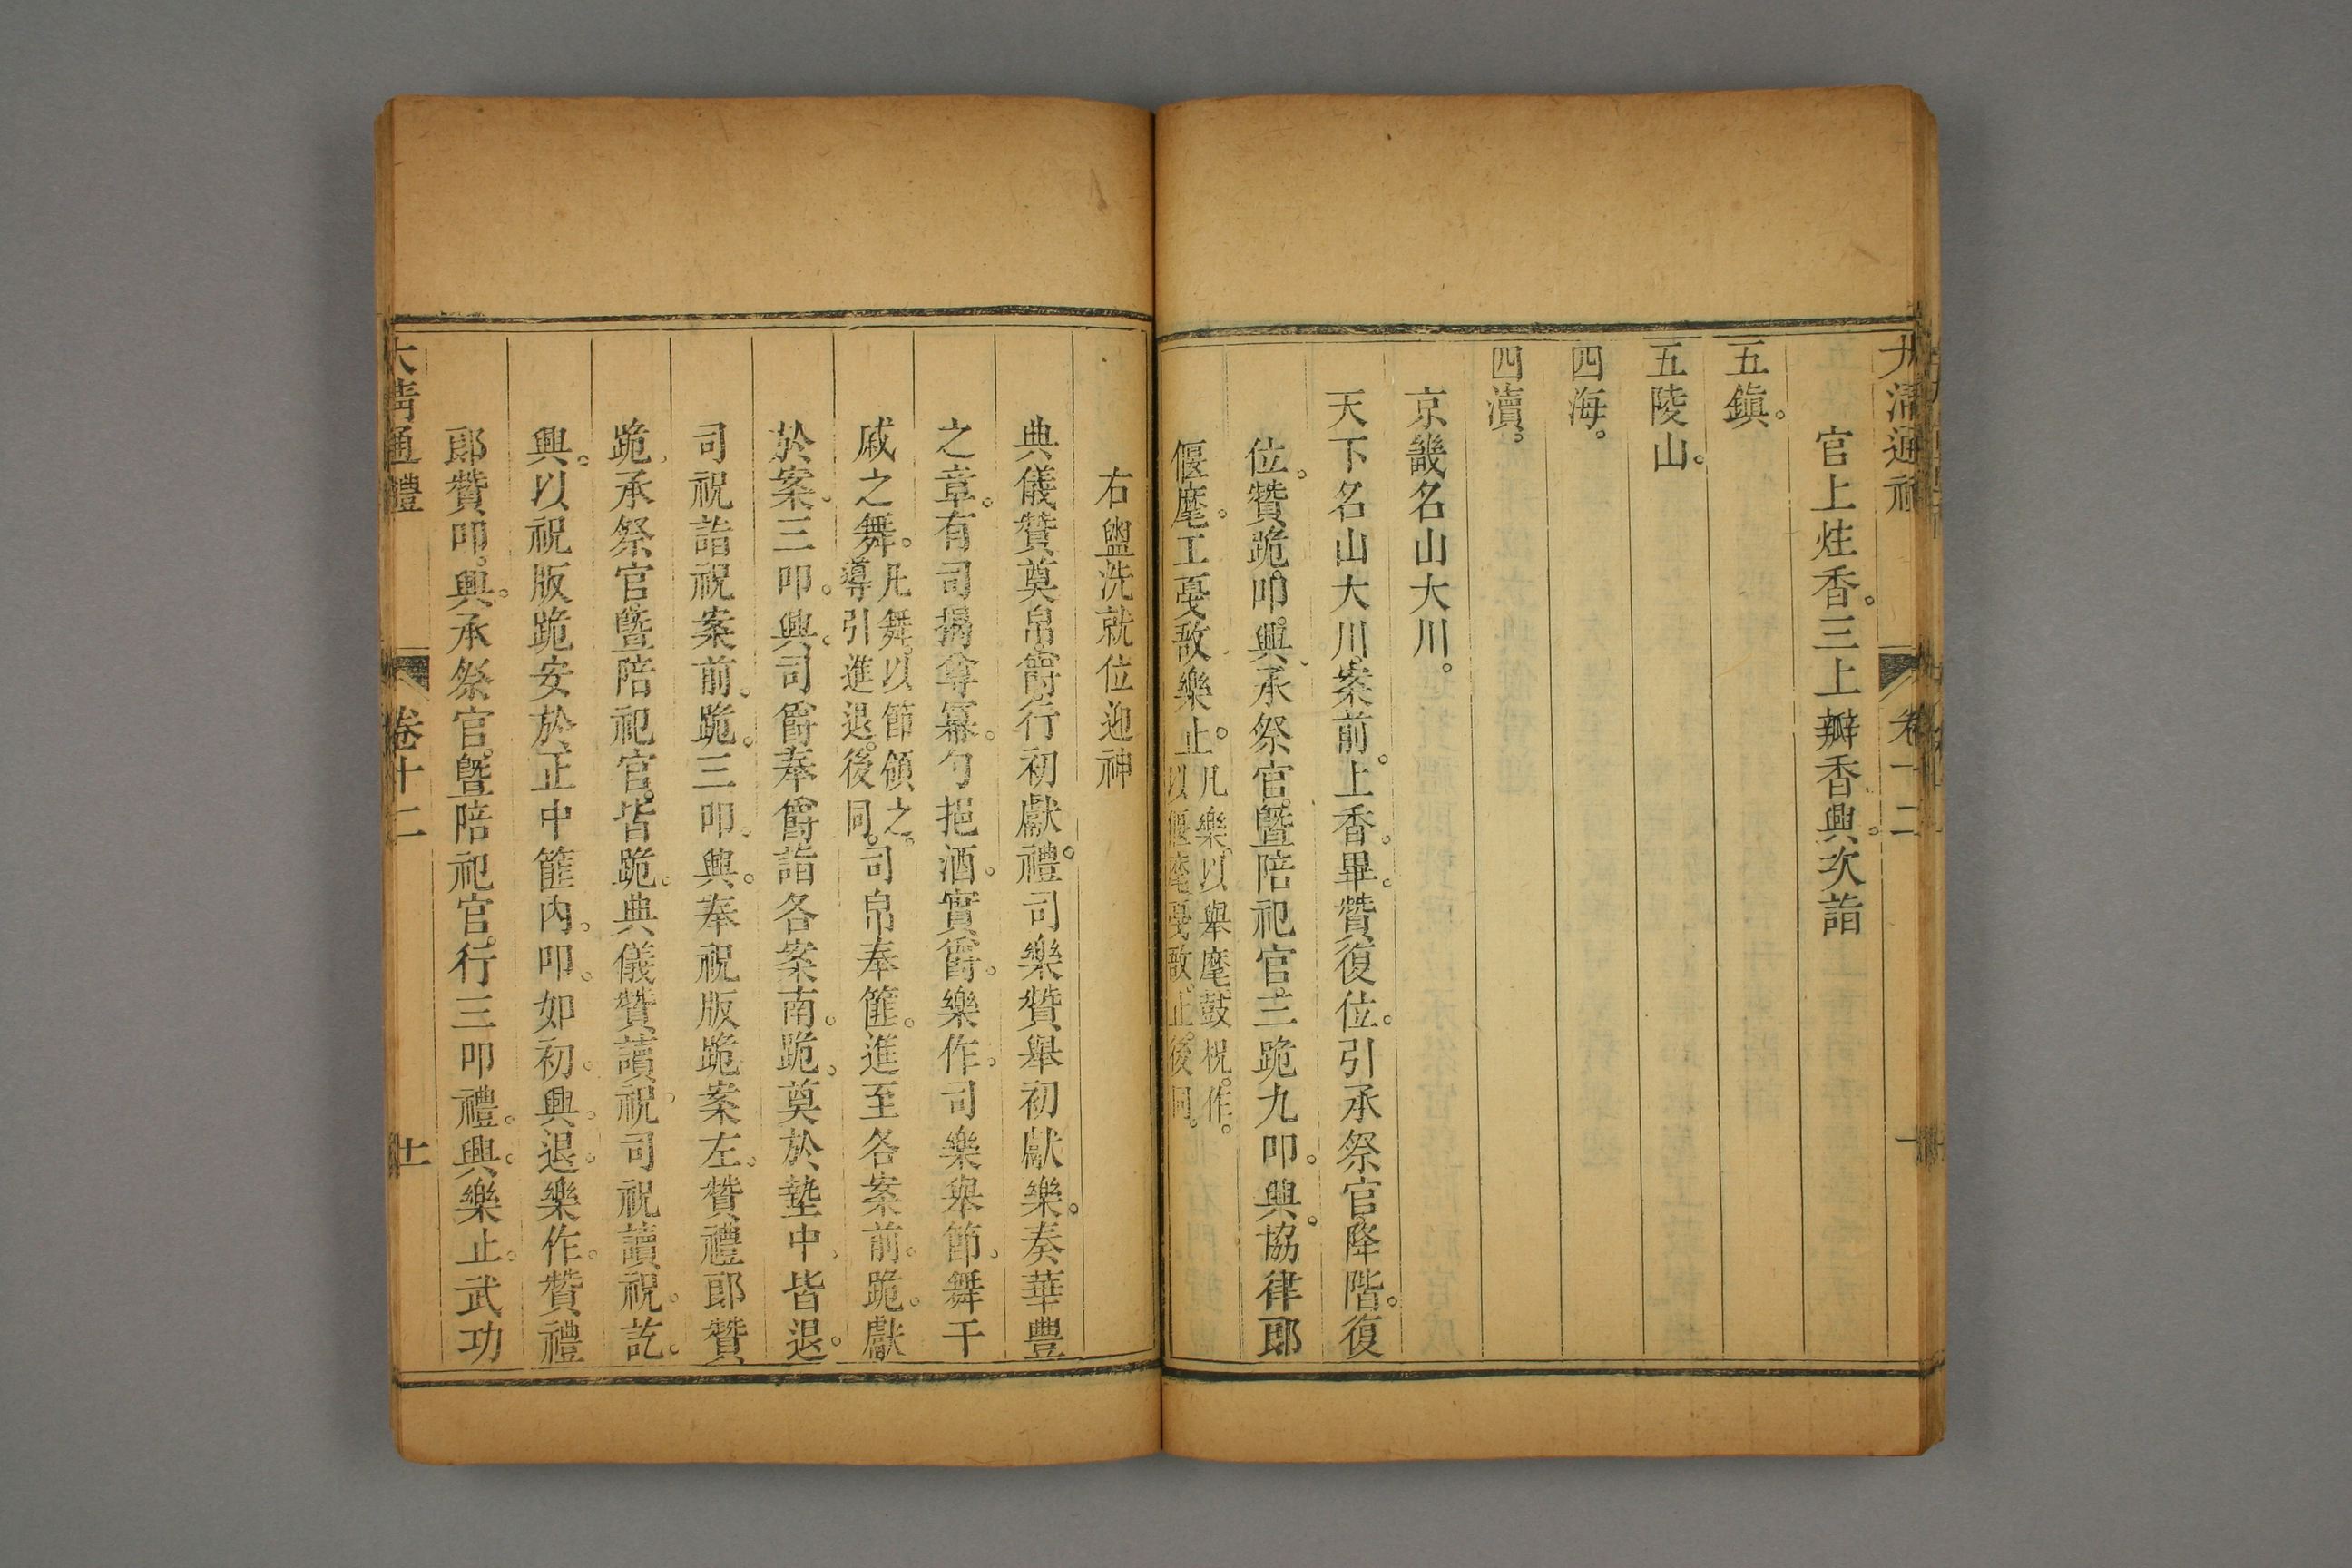 大清通禮 卷十二
官上炷香。三上瓣香。興。次詣
五鎮。
五陵山。
四海。
四瀆。
京畿名山大川。
天下名山大川案前。上香。畢。贊復位。引承祭官降階。復
位。贊跪。叩。興。承祭官曁陪祀官三跪九叩。興。協律郎
偃麾。工戞敔。樂止。凡樂。以舉麾鼓柷。作。以偃麾戞敔。止。後同。
右盥洗就位迎神
典儀贊奠帛爵。行初獻禮。司樂贊舉初獻樂。奏華豐
之章。有司揭尊冪。勺挹酒。實爵。樂作。司樂舉節。舞干
戚之舞。凡舞。以節領之。導引進退。後同。司帛奉篚。進至各案前。跪。獻
於案。三叩。興。司爵奉爵詣各案南。跪。奠於墊中。皆退。
司祝詣祝案前。跪。三叩。興。奉祝版跪案左。贊禮郎贊
跪。承祭官曁陪祀官。皆跪。典儀贊讀祝。司祝讀祝。訖。
興。以祝版跪安於正中篚內。叩。如初。興。退。樂作。贊禮
郎贊叩。興。承祭官曁陪祀官。行三叩禮。興。樂止。武功
大清通禮 卷十二 十一